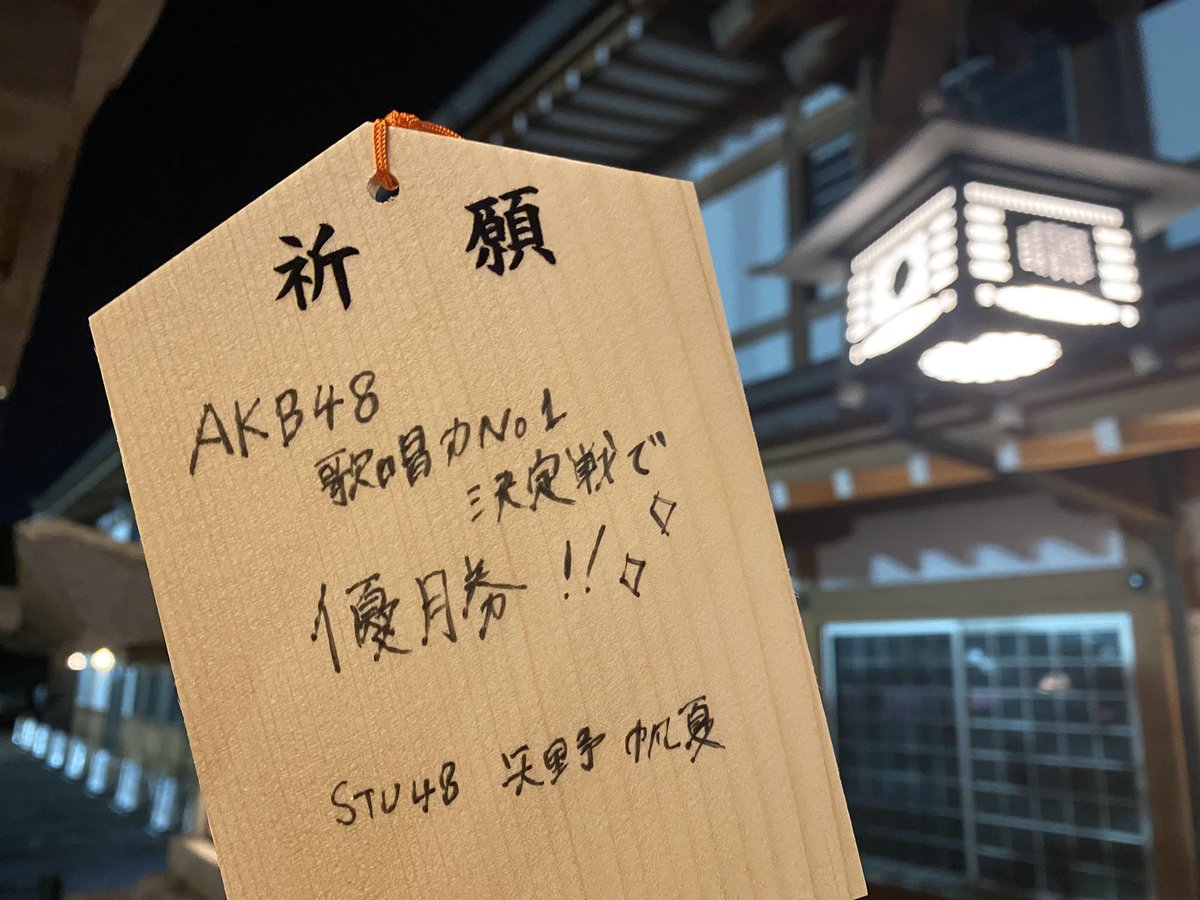 祈願
AKB48
歌唱力No1
決定戦で
優勝!!
STU48 矢野帆夏